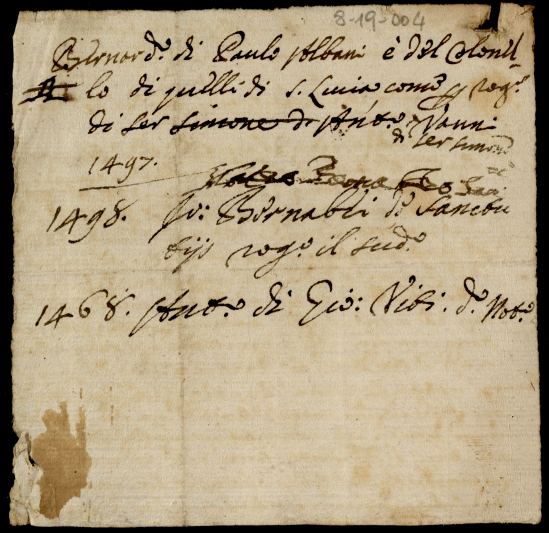 8-19-004
Bernardo. di Paulo Albani è del Colonel
lo di quelli di S. Lucia come p rog.o
di ser Simone di Ant.o Vanni
di ser Simone
1497.
1498. Jo: Bernabei de Sanctu
tijs rog.o il sud.o
1468. Ant.o di Gio: Viti. d.o Not.o